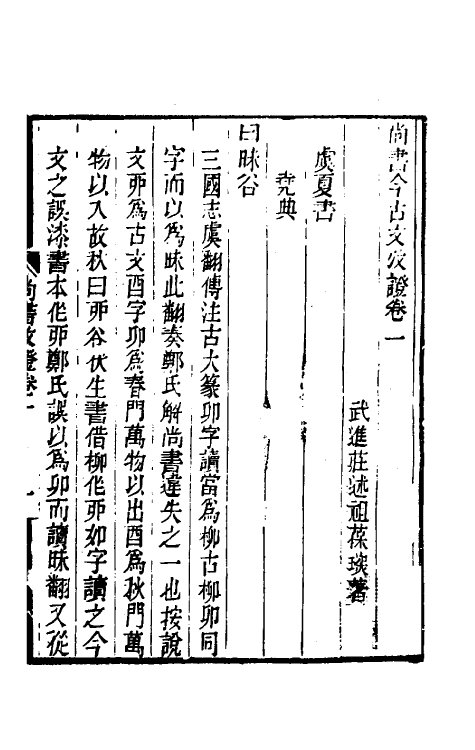 尚書今古文攷證卷一
武進莊述祖葆琛著
虞夏書
堯典
曰昧谷
三國志虞翻傳注古大篆卯字讀當爲柳古柳卯同
字而以爲昧此翻奏鄭氏解尚書違失之一也按說
文丣爲古文酉字卯爲春門萬物以出酉爲秋門萬
物以入故秋曰丣谷伏生書借柳作丣如字讀之今
文之誤漆書本作丣鄭氏誤以爲卯而讀昧翻又從
尚書攷證卷一
一